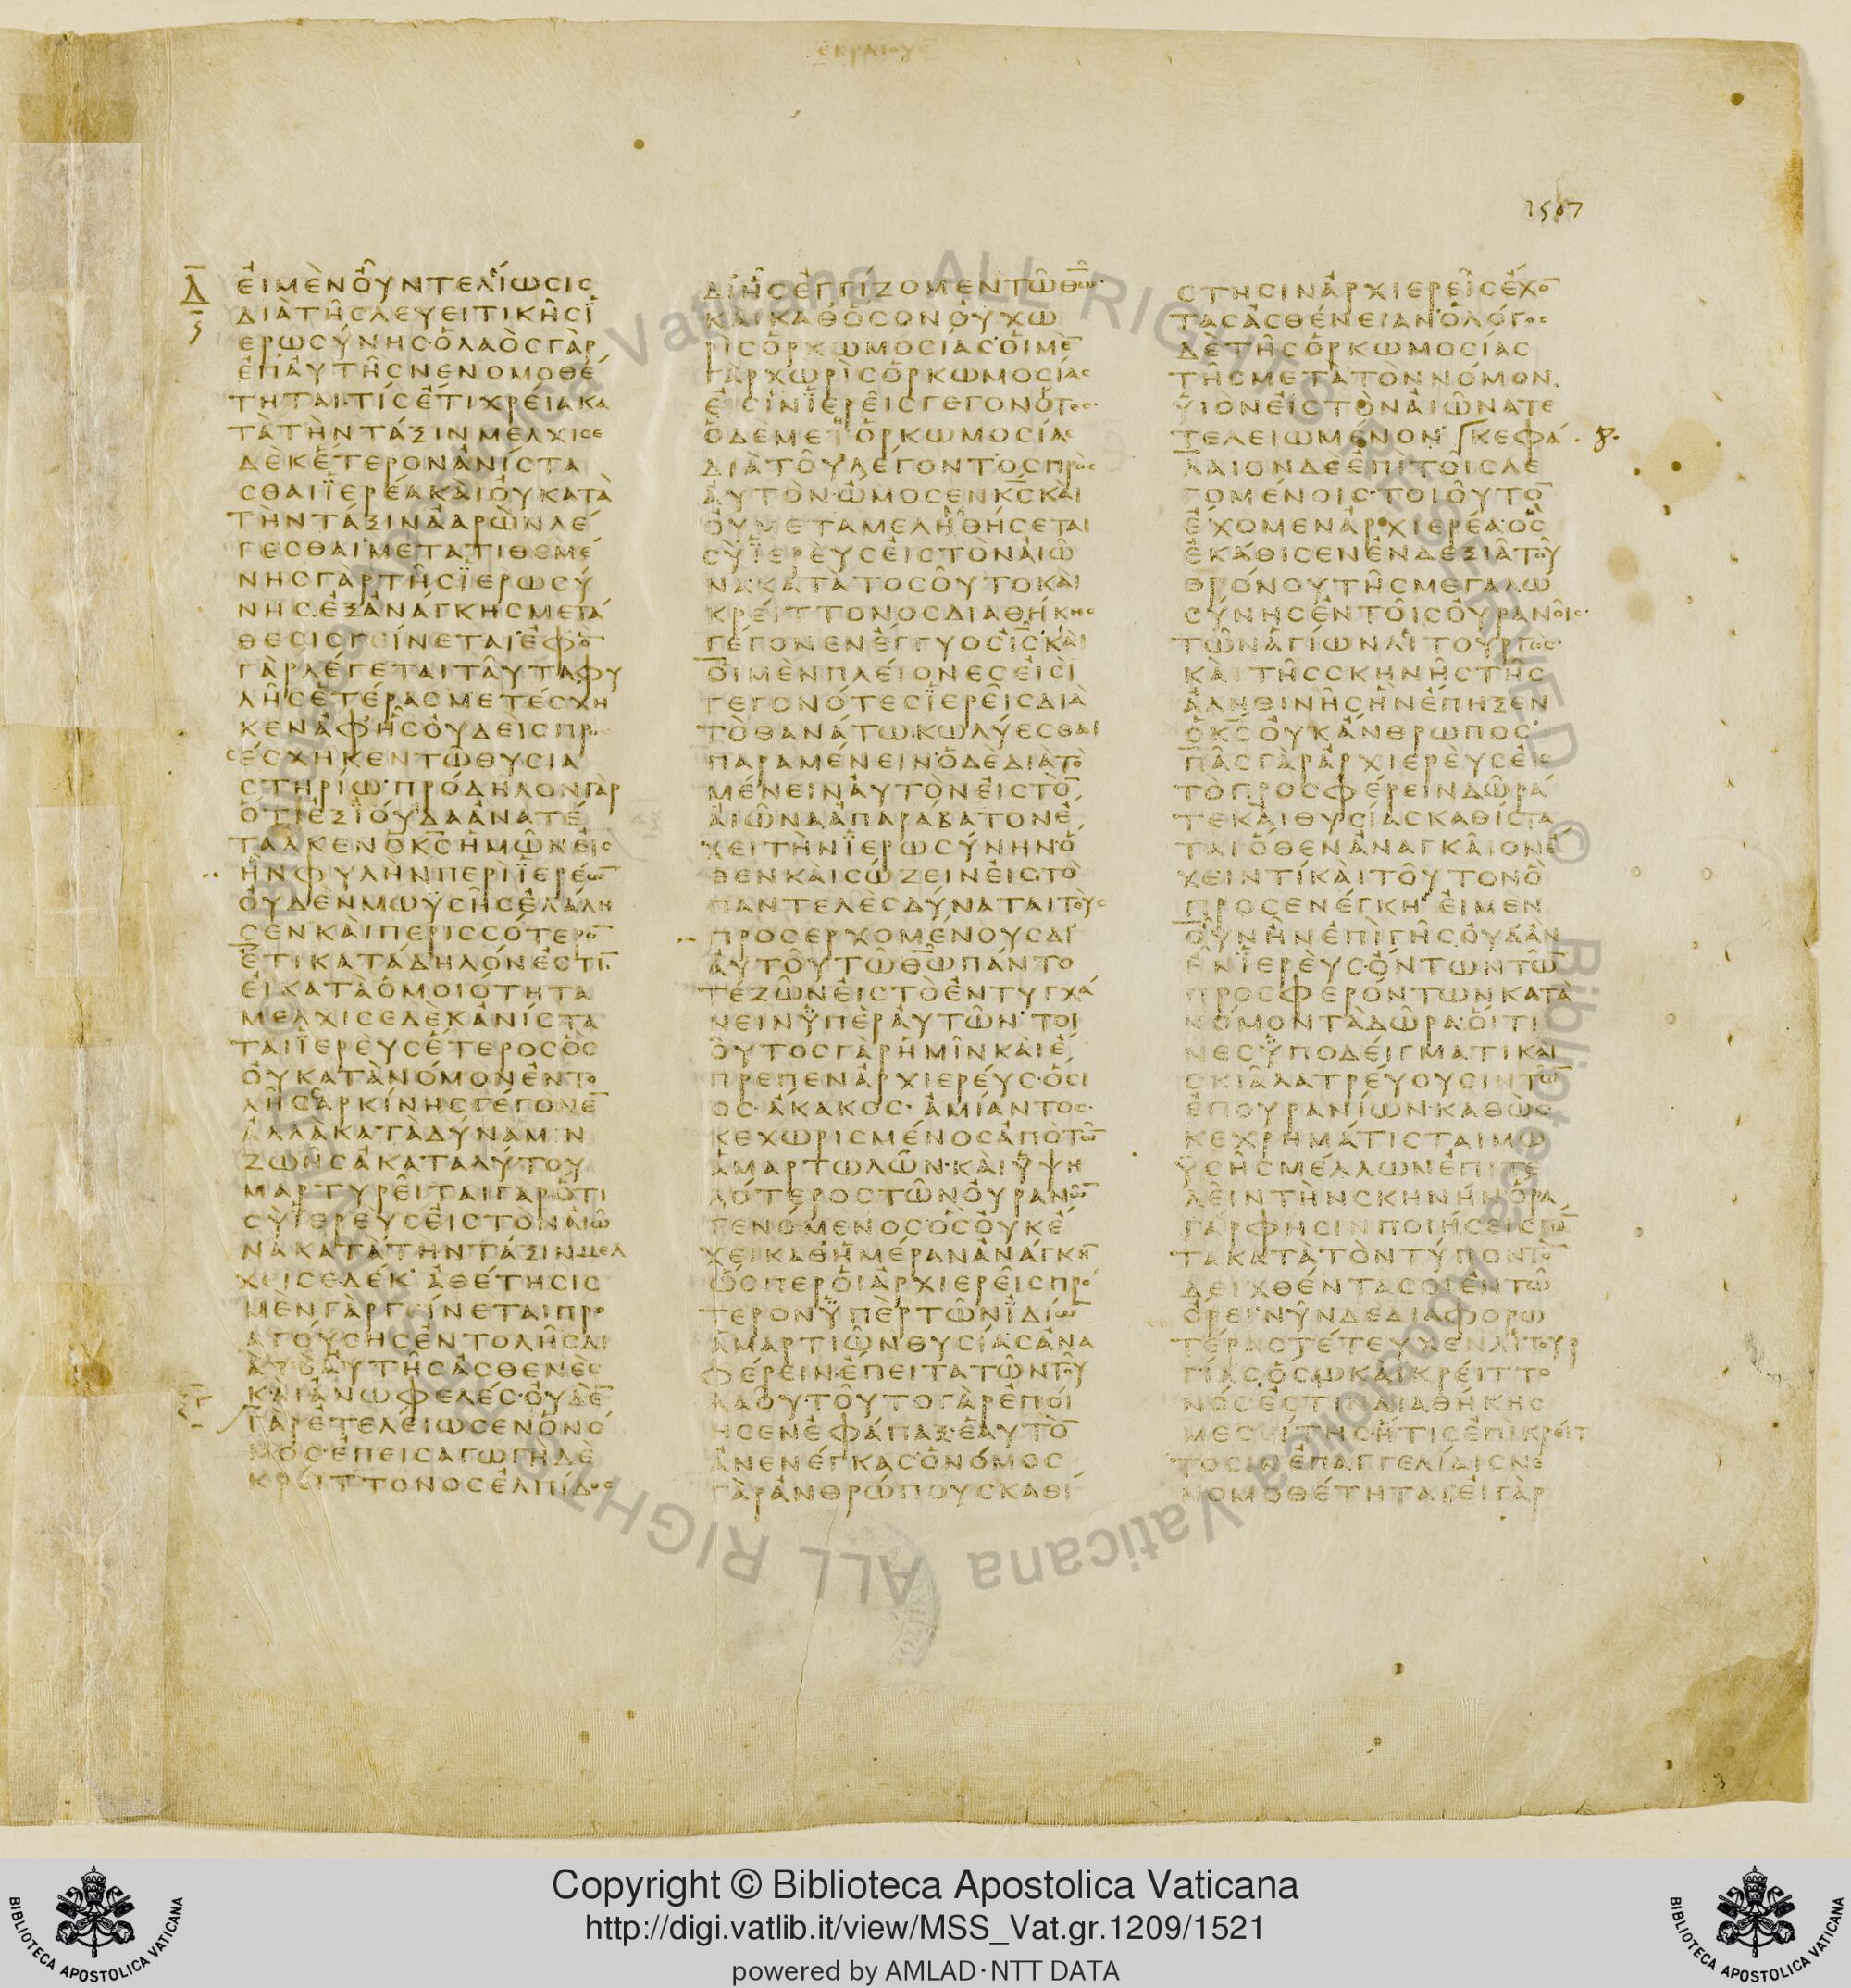 ΕΒΡΑΙΟΥΣ
1507
Δ
ΕΙΜΕΝΟΥΝΤΕΛΕΙΩCΙC
ΔΙΑΤΗCΛΕΥΕΙΤΙΚΗCΪ
ΕΡΩCΥΝΗC·ΟΛΑΟCΓΑΡ
ΕΠΑΥΤΗCΝΕΝΟΜΟΘΕ
ΤΗΤΑΙ·ΤΙCΕΤΙΧΡΕΙΑΚΑ
ΤΑΤΗΝΤΑΞΙΝΜΕΛΧΙCΕ
ΔΕΚΕΤΕΡΟΝΑΝΙCΤΑ
CΘΑΙΪΕΡΕΑΚΑΙΟΥΚΑΤΑ
ΤΗΝΤΑΞΙΝΑΑΡΩΝΛΕ
ΓΕCΘΑΙ·ΜΕΤΑΤΙΘΕΜΕ
ΝΗCΓΑΡΤΗCΪΕΡΩCΥ
ΝΗC·ΕΞΑΝΑΓΚΗCΜΕΤΑ
ΘΕCΙCΓΕΙΝΕΤΑΙ·ΕΦΟ̅
ΓΑΡΛΕΓΕΤΑΙΤΑΥΤΑΦΥ
ΛΗCΕΤΕΡΑCΜΕΤΕCΧΗ
ΚΕΝΑΦΗCΟΥΔΕΙCΠΡΟ
CΕCΧΗΚΕΝΤΩΘΥCΙΑ
CΤΗΡΙΩ·ΠΡΟΔΗΛΟΝΓΑΡ
ΟΤΙΕΞΪΟΥΔΑΑΝΑΤΕ
ΤΑΛΚΕΝΟΚ̅C̅ΗΜΩΝΕΙC
ΗΝΦΥΛΗΝΠΕΡΙΪΕΡΕΩ̅
ΟΥΔΕΝΜΩΫCΗCΕΛΑΛΗ
CΕΝΚΑΙΠΕΡΙCCΟΤΕΡΟ̅
ΕΤΙΚΑΤΑΔΗΛΟΝΕCΤΙ̅
ΕΙΚΑΤΑΟΜΟΙΟΤΗΤΑ
ΜΕΛΧΙCΕΔΕΚΑΝΙCΤΑ
ΤΑΙΪΕΡΕΥCΕΤΕΡΟCΟC
ΟΥΚΑΤΑΝΟΜΟΝΕΝΤΟ
ΛΗCCΑΡΚΙΝΗCΓΕΓΟΝΕ̅
ΑΛΛΑΚΑΤΑΔΥΝΑΜΙΝ
ΖΩΗCΑΚΑΤΑΛΥΤΟΥ
ΜΑΡΤΥΡΕΙΤΑΙΓΑΡΟΤΙ
CΥΪΕΡΕΥCΕΙCΤΟΝΑΙΩ
ΝΑΚΑΤΑΤΗΝΤΑΞΙΝΜΕΛ
ΧΕΙCΕΔΕΚ·ΑΘΕΤΗCΙC
ΜΕΝΓΑΡΓΕΙΝΕΤΑΙΠΡΟ
ΑΓΟΥCΗCΕΝΤΟΛΗCΔΙ
ΑΤΟΑΥΤΗCΑCΘΕΝΕC
ΚΑΙΑΝΩΦΕΛΕC·ΟΥΔΕ̅
ΓΑΡΕΤΕΛΕΙΩCΕΝΟΝΟ
ΜΟC·ΕΠΕΙCΑΓΩΓΗΔΕ
ΚΡΕΙΤΤΟΝΟCΕΛΠΙΔΟC
ΔΙΗCΕΓΓΙΖΟΜΕΝΤΩΘ̅Ω̅·
ΚΑΙΚΑΘΟCΟΝΟΥΧΩ
ΡΙCΟΡΚΩΜΟCΙΑC·ΟΙΜΕ̅
ΓΑΡΧΩΡΙCΟΡΚΩΜΟCΙΑC
ΕΙCΙΝΪΕΡΕΙCΓΕΓΟΝΟΤΕC·
ΟΔΕΜΕΤΟΡΚΩΜΟCΙΑC
ΔΙΑΤΟΥΛΕΓΟΝΤΟCΠΡΟC
ΑΥΤΟΝ·ΩΜΟCΕΝΚ̅C̅ΚΑΙ
ΟΥΜΕΤΑΜΕΛΗΘΗCΕΤΑΙ
CΥΪΕΡΕΥCΕΙCΤΟΝΑΙΩ
ΝΑ·ΚΑΤΑΤΟCΟΥΤΟΚΑΙ
ΚΡΕΙΤΤΟΝΟCΔΙΑΘΗΚΗC
ΓΕΓΟΝΕΝΕΓΓΥΟCΙ̅C̅·ΚΑΙ
ΟΙΜΕΝΠΛΕΙΟΝΕCΕΙCΙ
ΓΕΓΟΝΟΤΕCΪΕΡΕΙCΔΙΑ
ΤΟΘΑΝΑΤΩΚΩΛΥΕCΘΑΙ
ΠΑΡΑΜΕΝΕΙΝ·ΟΔΕΔΙΑΤΟ
ΜΕΝΕΙΝΑΥΤΟΝΕΙCΤΟ̅
ΑΙΩΝΑΑΠΑΡΑΒΑΤΟΝΕ
ΧΕΙΤΗΝΪΕΡΩCΥΝΗΝ·Ο
ΘΕΝΚΑΙCΩΖΕΙΝΕΙCΤΟ
ΠΑΝΤΕΛΕCΔΥΝΑΤΑΙΤΟΥC
ΠΡΟCΕΡΧΟΜΕΝΟΥCΔΙ
ΑΥΤΟΥΤΩΘ̅Ω̅ΠΑΝΤΟ
ΤΕΖΩΝΕΙCΤΟΕΝΤΥΓΧΑ
ΝΕΙΝΫΠΕΡΑΥΤΩΝ·ΤΟΙ
ΟΥΤΟCΓΑΡΗΜΙΝΚΑΙΕ
ΠΡΕΠΕΝΑΡΧΙΕΡΕΥC·ΟCΙ
ΟC·ΑΚΑΚΟC·ΑΜΙΑΝΤΟC·
ΚΕΧΩΡΙCΜΕΝΟCΑΠΟΤΩ̅
ΑΜΑΡΤΩΛΩΝ·ΚΑΙΫΨΗ
ΛΟΤΕΡΟCΤΩΝΟΥΡΑΝΩ̅
ΓΕΝΟΜΕΝΟC·ΟCΟΥΚΕ
ΧΕΙΚΑΘΗΜΕΡΑΝΑΝΑΓΚΗ̅
ΩCΠΕΡΟΙΑΡΧΙΕΡΕΙCΠΡΟ
ΤΕΡΟΝΫΠΕΡΤΩΝΪΔΙΩ̅
ΑΜΑΡΤΙΩΝΘΥCΙΑCΑΝΑ
ΦΕΡΕΙΝ·ΕΠΕΙΤΑΤΩΝΤΟΥ
ΛΑΟΥ·ΤΟΥΤΟΓΑΡΕΠΟΙ
ΗCΕΝΕΦΑΠΑΞ·ΕΑΥΤΟ̅
ΑΝΕΝΕΓΚΑC·ΟΝΟΜΟC
ΓΑΡΑΝΘΡΩΠΟΥCΚΑΘΙ
CΤΗCΙΝΑΡΧΙΕΡΕΙCΕΧΟ̅
ΤΑCΑCΘΕΝΕΙΑΝ·ΟΛΟΓΟC
ΔΕΤΗCΟΡΚΩΜΟCΙΑC
ΤΗCΜΕΤΑΤΟΝΝΟΜΟΝ
ΫΙΟΝΕΙCΤΟΝΑΙΩΝΑΤΕ
ΤΕΛΕΙΩΜΕΝΟΝ·ΚΕΦΑ 8.
ΛΑΙΟΝΔΕΕΠΙΤΟΙCΛΕ
ΓΟΜΕΝΟΙC·ΤΟΙΟΥΤΟ̅
ΕΧΟΜΕΝΑΡΧΙΕΡΕΑ·ΟC
ΕΚΑΘΙCΕΝΕΝΔΕΞΙΑΤΟΥ
ΘΡΟΝΟΥΤΗCΜΕΓΑΛΩ
CΥΝΗCΕΝΤΟΙCΟΥΡΑΝΟΙC·
ΤΩΝΑΓΙΩΝΛΕΙΤΟΥΡΓΟC·
ΚΑΙΤΗCCΚΗΝΗCΤΗC
ΑΛΗΘΙΝΗCΗΝΕΠΗΞΕΝ
ΟΚ̅C̅ΟΥΚΑΝΘΡΩΠΟC·
ΠΑCΓΑΡΑΡΧΙΕΡΕΥCΕΙC
ΤΟΠΡΟCΦΕΡΕΙΝΔΩΡΑ
ΤΕΚΑΙΘΥCΙΑCΚΑΘΙCΤΑ
ΤΑΙ·ΟΘΕΝΑΝΑΓΚΑΙΟΝΕ
ΧΕΙΝΤΙΚΑΙΤΟΥΤΟΝΟ
ΠΡΟCΕΝΕΓΚΗ·ΕΙΜΕΝ
ΟΥΝΗΝΕΠΙΓΗC·ΟΥΔΑΝ
ΗΝΪΕΡΕΥC·ΟΝΤΩΝΤΩ̅
ΠΡΟCΦΕΡΟΝΤΩΝΚΑΤΑ
ΝΟΜΟΝΤΑΔΩΡΑ·ΟΙΤΙ
ΝΕCΫΠΟΔΕΙΓΜΑΤΙΚΑΙ
CΚΙΑΛΑΤΡΕΥΟΥCΙΝΤΩ̅
ΕΠΟΥΡΑΝΙΩΝ·ΚΑΘΩC
ΚΕΧΡΗΜΑΤΙCΤΑΙΜΩ
ΫCΗCΜΕΛΛΩΝΕΠΙΤΕ
ΛΕΙΝΤΗΝCΚΗΝΗΝ·ΟΡΑ
ΓΑΡΦΗCΙΝΠΟΙΗCΕΙCΠΑ̅
ΤΑΚΑΤΑΤΟΝΤΥΠΟΝΤΟ̅
ΔΕΙΧΘΕΝΤΑCΟΙΕΝΤΩ
ΟΡΕΙ·ΝΥΝΔΕΔΙΑΦΟΡΩ
ΤΕΡΑCΤΕΤΕΥΧΕΝΛΕΙΤΟΥΡ
ΓΙΑC·ΟCΩΚΑΙΚΡΕΙΤΤΟ
ΝΟCΕCΤΙΝΔΙΑΘΗΚΗC
ΜΕCΕΙΤΗC·ΗΤΙCΕΠΙΚΡΕΙΤ
ΤΟCΙΝΕΠΑΓΓΕΛΙΑΙCΝΕ
ΝΟΜΟΘΕΤΗΤΑΙ·ΕΙΓΑΡ
Copyright © Biblioteca Apostolica Vaticana
http://digi.vatlib.it/view/MSS_Vat.gr.1209/1521
powered by AMLAD·NTT DATA
BIBLIOTECA APOSTOLICA VATICANA
BIBLIOTECA APOSTOLICA VATICANA